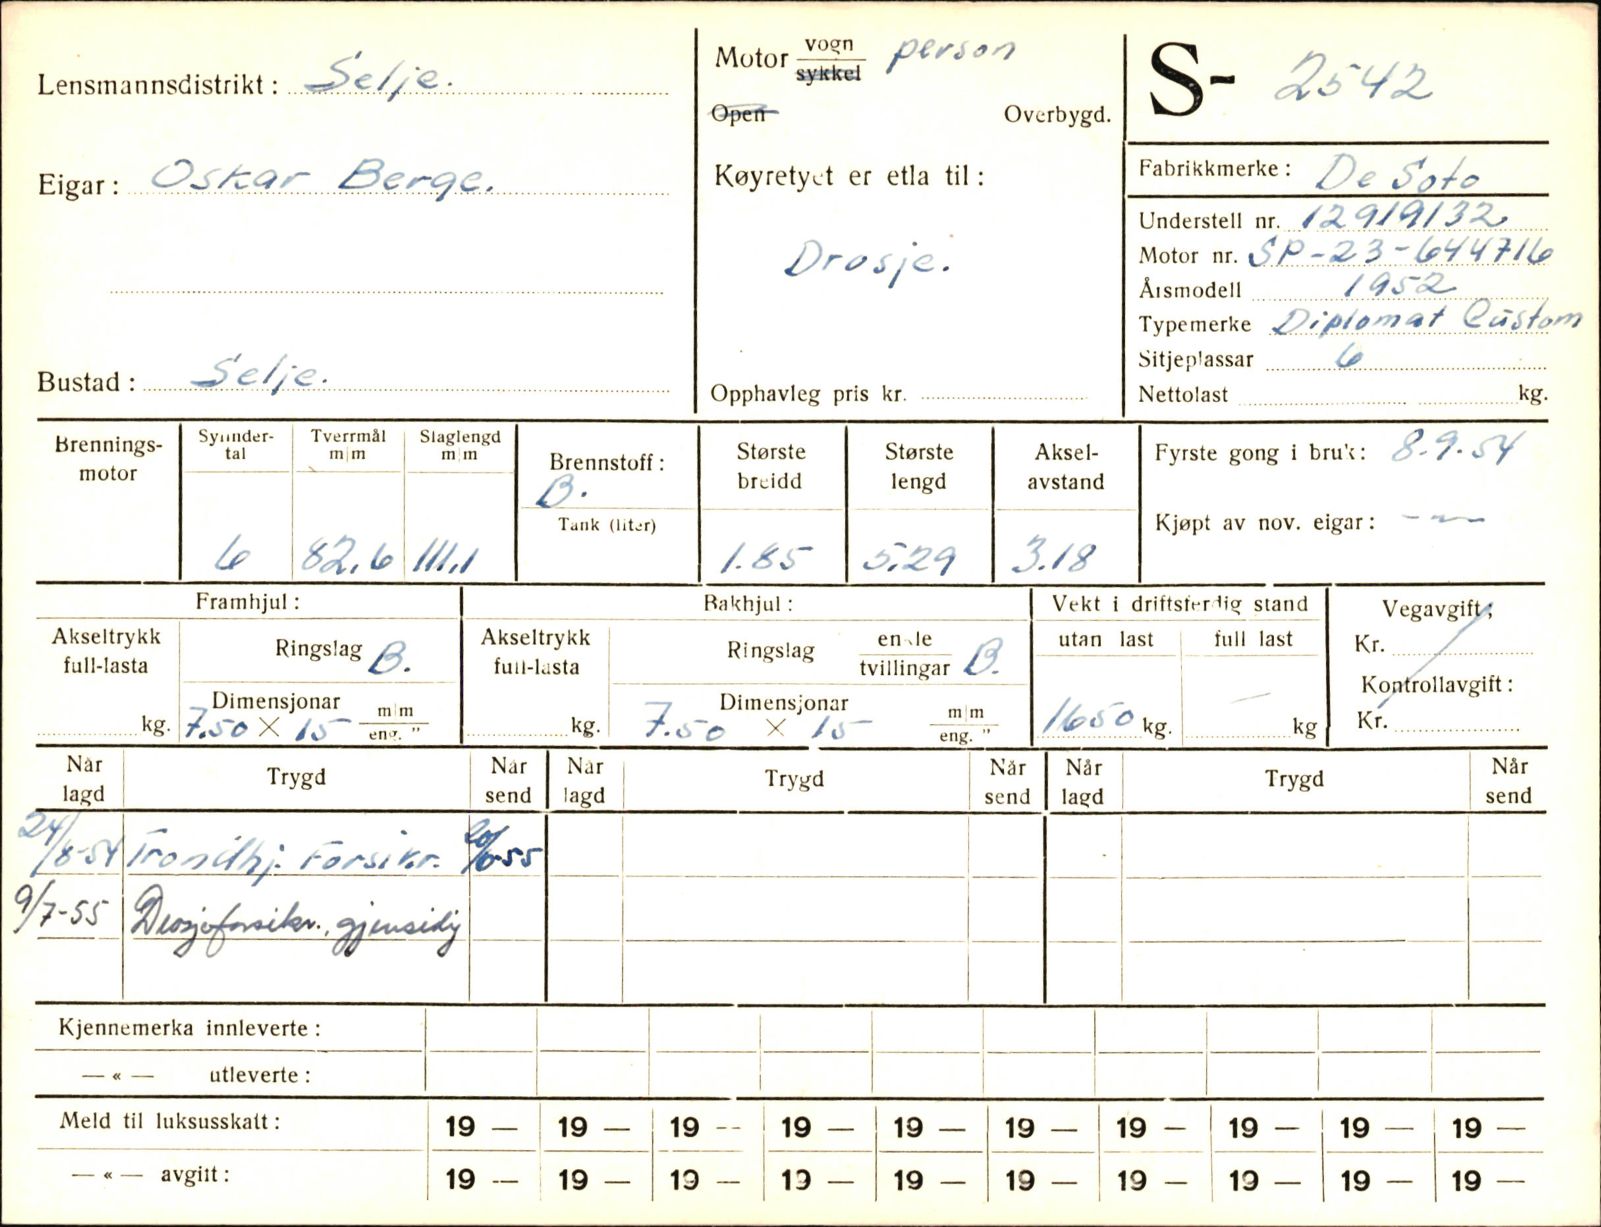 Lensmannsdistrikt: Selje.
Eigar: Oskar Berge.
Bustad: Selje.
Motor vogn person
sykkel
Open Overbygd.
Køyretyet er etla til:
Drosje.
Opphavleg pris kr.
S- 2542
Fabrikkmerke: De Soto
Understell nr. 12919132
Motor nr. SP-23-644716
Årsmodell 1952
Typemerke Diplomat Custom
Sitjeplassar 6
Nettolast kg.
Brennings-
motor
Sylinder-
tal
6
Tverrmål
m|m
82,6
Slaglengd
m|m
111,1
Brennstoff:
B.
Tank (liter)
Største
breidd
1.85
Største
lengd
5.29
Aksel-
avstand
3.18
Fyrste gong i bruk: 8.9.54
Kjøpt av nov. eigar: -"-
Framhjul:
Akseltrykk
full-lasta
kg.
Ringslag B.
Dimensjonar
7.50 × 15 m|m
eng. "
Bakhjul:
Akseltrykk
full-lasta
kg.
Ringslag enkle
tvillingar B.
Dimensjonar
7.50 × 15 m|m
eng. "
Vekt i driftsferdig stand
utan last full last
1650 kg. — kg
Vegavgift:
Kr.
Kontrollavgift:
Kr.
Når
lagd Trygd Når
send Når
lagd Trygd Når
send Når
lagd Trygd Når
send
24/8-54 Trondhj. Forsikr. 20/6-55
9/7-55 Drosjeforsikr. gjensidig
Kjennemerka innleverte:
— « — utleverte:
Meld til luksusskatt: 19 — 19 — 19 — 19 — 19 — 19 — 19 — 19 — 19 — 19 —
— « — avgift: 19 — 19 — 19 — 19 — 19 — 19 — 19 — 19 — 19 — 19 —